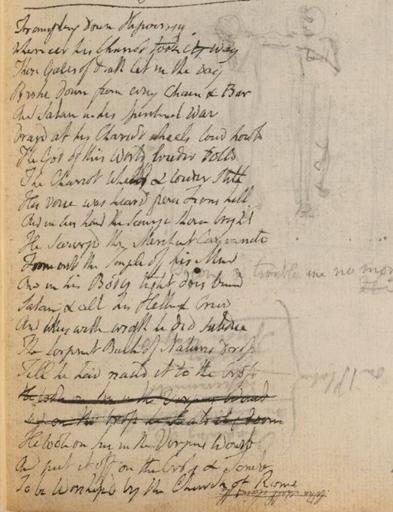 Trampling down Hipocrisy
Where eer his Chariot took its way
There Gates of Death let in the Day
Broke down from every Chain & Bar
And Satan in his Spiritual War
Dragd at his Chariot wheels loud howld
The God of this World louder rolld
The Chariot Wheels & louder still
His voice was heard from Zions hill
And in his hand the Scourge shone bright
He Scourgd the Merchant Canaanite
From out the Temple of his Mind
And in his Body tight does bind
trouble me no more
Satan & all his Hellish Crew
And thus with wrath he did subdue
The Serpent Bulk of Natures dross
Till he had naild it to the Cross
He took on Sin in the Virgins Womb
on the Cross
He took on Sin in the Virgins Womb
And put it off on the Cross & Tomb
To be Worshipd by the Church of Rome